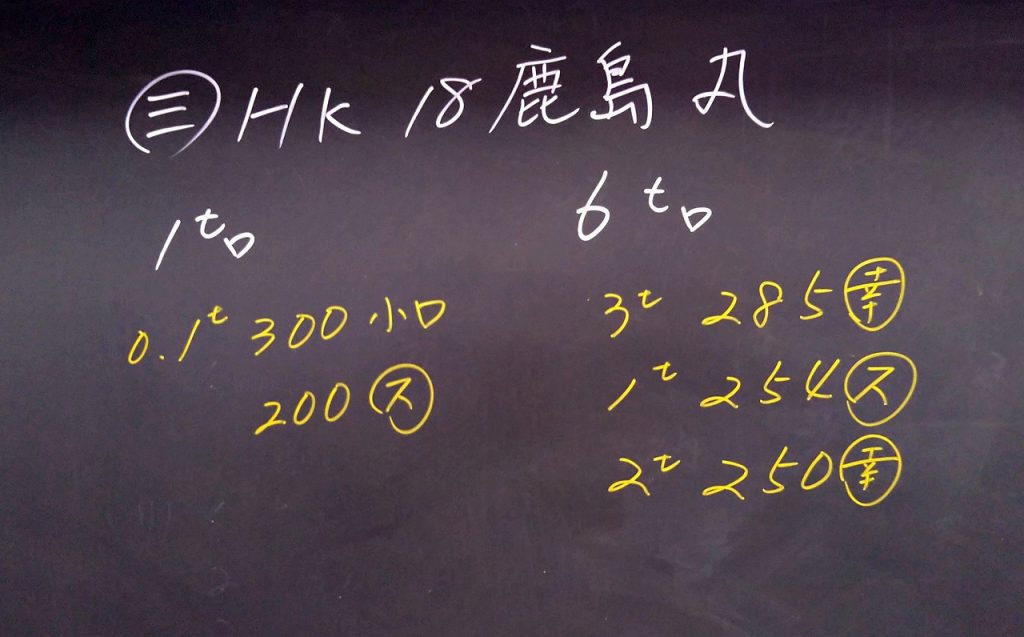 ㊂HK 18鹿島丸
1t口
0.1t 300 小口
200 ㋜
6t口
3t 285 ㊵
1t 254 ㋜
2t 250 ㊵